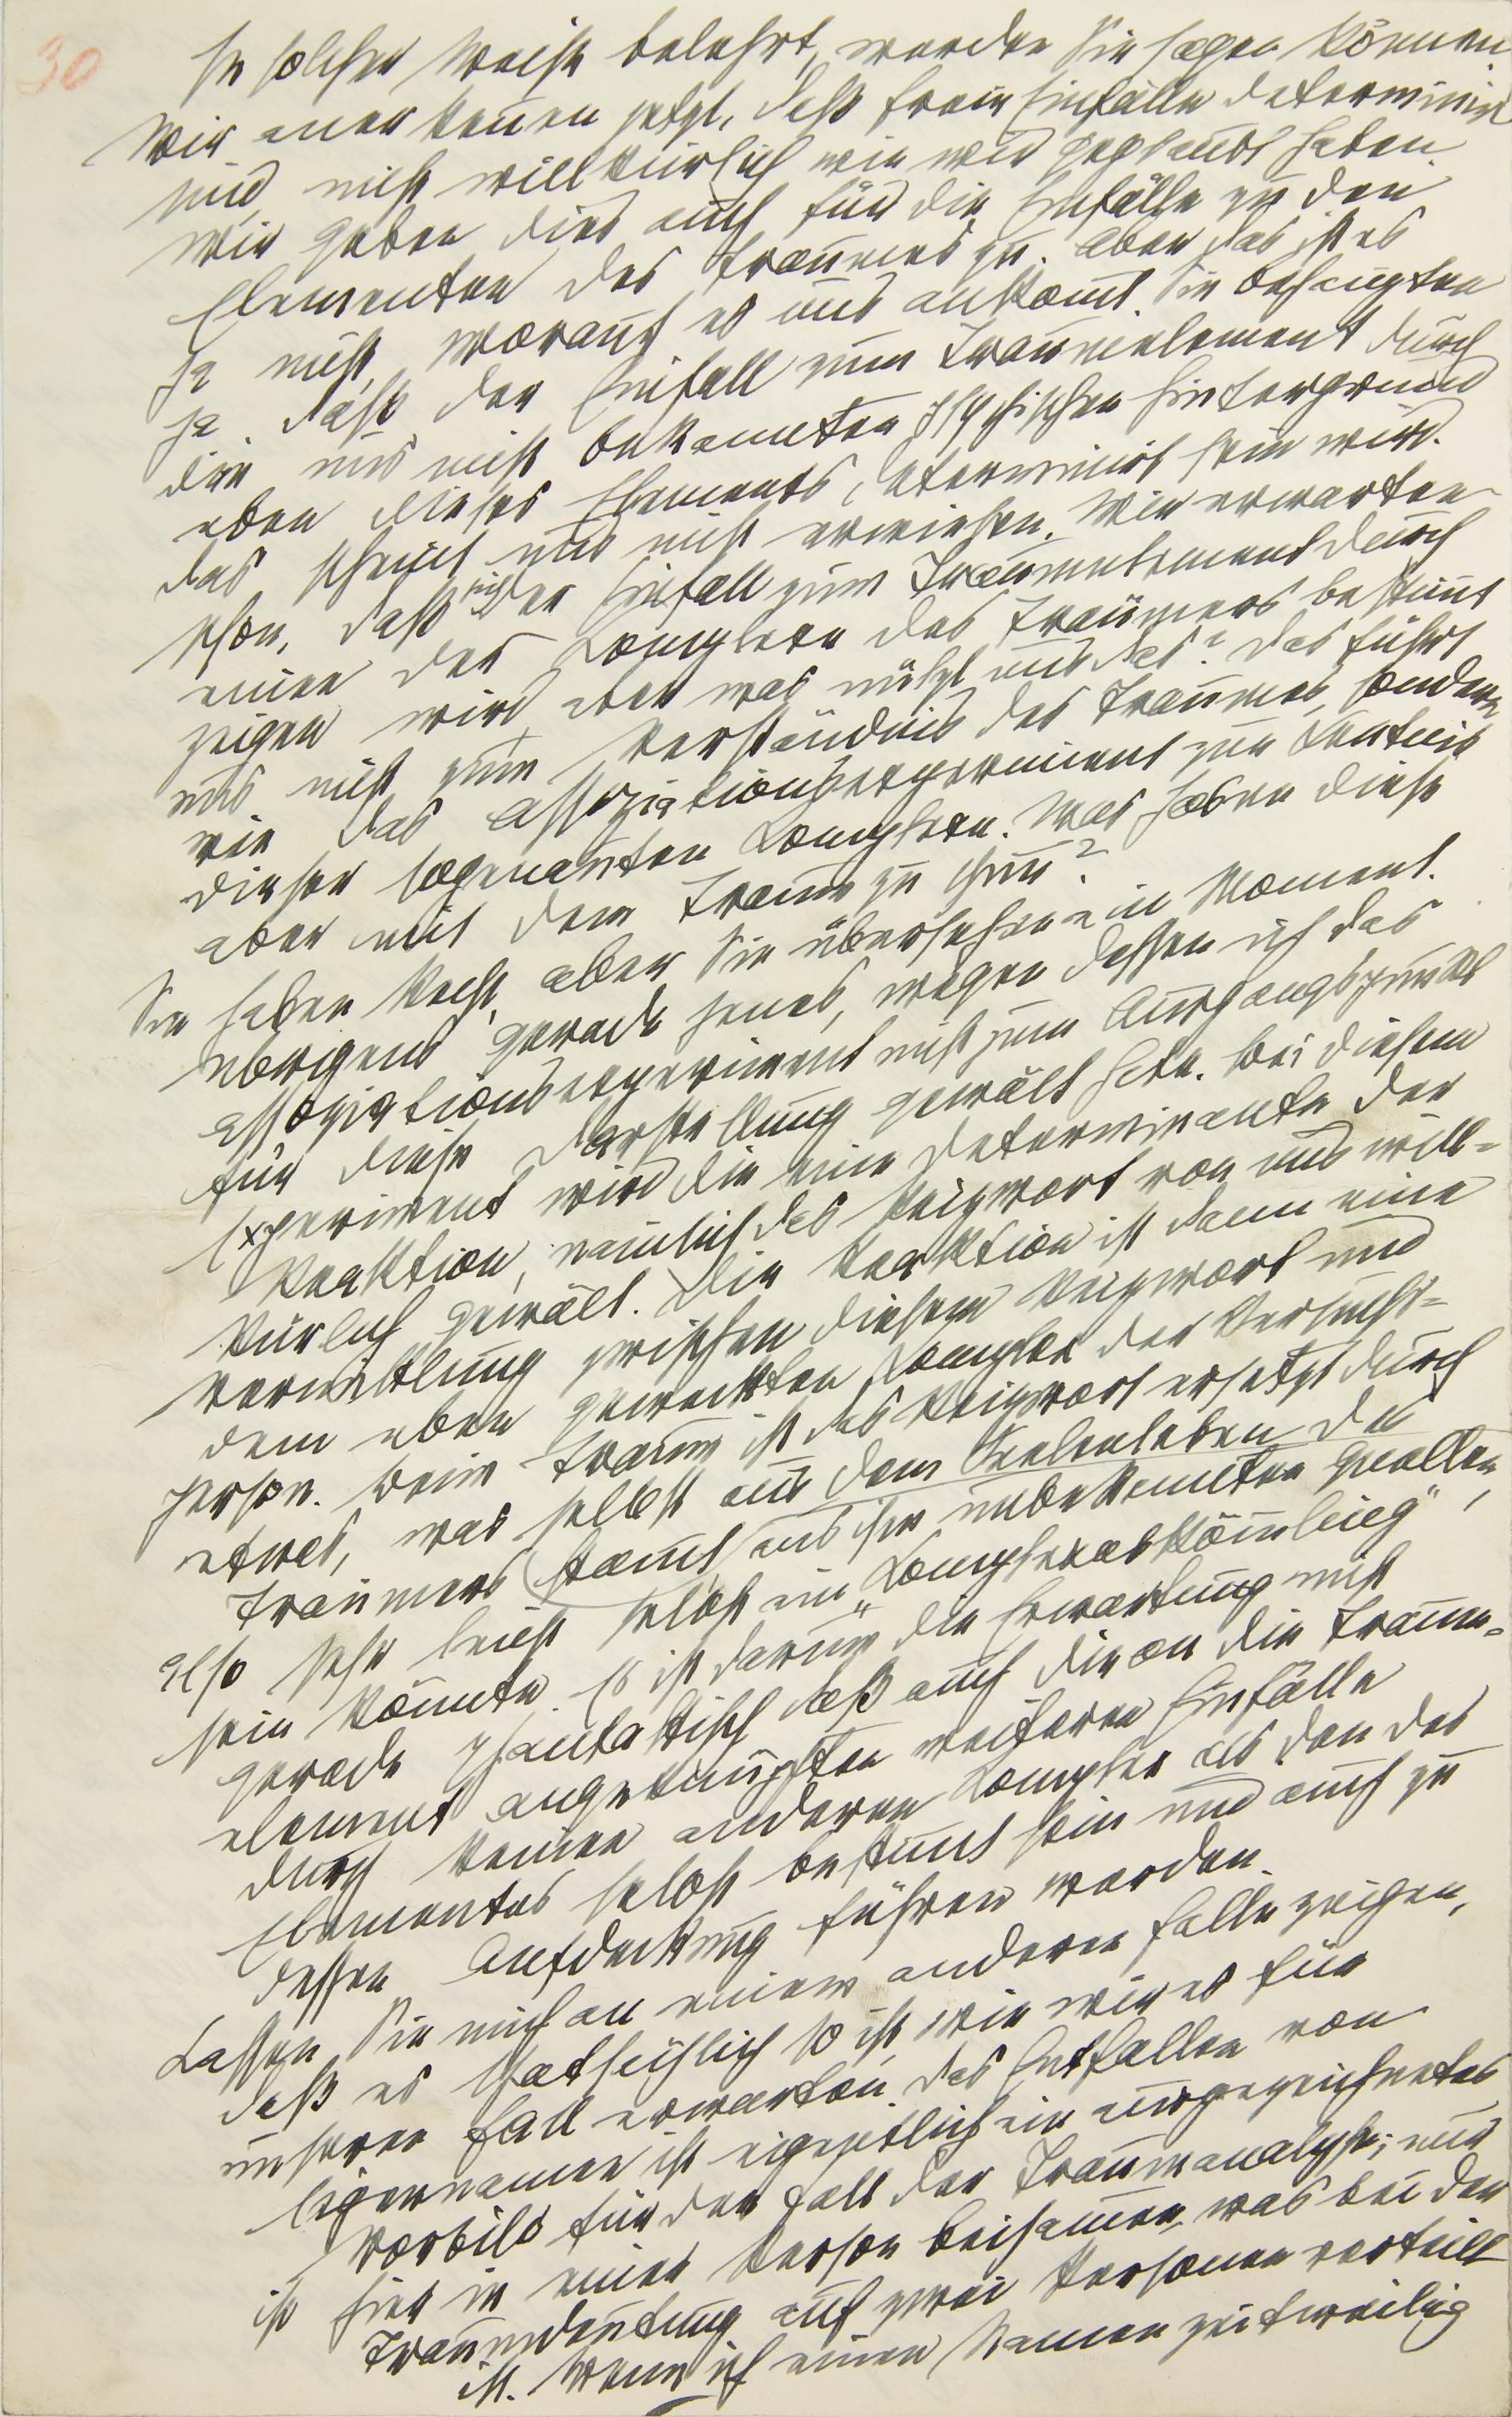 30
In solcher Weise belehrt, werden Sie sagen können:
Wir anerkennen jetzt, daß freie Einfälle determinirt
sind, nicht willkürlich wie wir geglaubt haben.
Wir geben dies auch für die Einfälle zu den
Elementen des Traumes zu. Aber das ist es
ja nicht, worauf es uns ankomt. Sie behaupten
ja, daß der Einfall zum Traumelement durch
den uns nicht bekannten psychischen Hintergrund
eben dieses Elements, determinirt sein wird.
Das scheint uns nicht erwiesen. Wir erwarten
schon, daß sich der Einfall zum Traumelement durch
einen der Komplexe des Träumers bestimt
zeigen wird, aber was nützt uns das? Das führt
uns nicht zum Verständnis des Traumes, sondern
wie das Assoziationsexperiment zur Kentnis
dieser sogenanten Komplexe. Was haben diese
aber mit dem Traum zu thun?
Sie haben Recht, aber Sie übersehen ein Moment.
Übrigens gerade jenes, wegen dessen ich das
Assoziationsexperiment nicht zum Ausgangspunkt
für diese Darstellung gewält habe. Bei diesem
Experiment wird die eine Determinante der
Reaktion, nämlich das Reizwort von uns will=
kürlich gewält. Die Reaktion ist dann eine
Vermittlung zwischen diesem Reizwort und
dem eben geweckten Komplex der Versuchs=
person. Beim Traum ist das Reizwort ersetzt durch
etwas, was selbst aus dem Seelenleben des
Träumers stamt, aus ihm unbekannten Quellen,
also sehr leicht selbst ein „Komplexabkömling"
sein könnte. Es ist darum die Erwartung nicht
gerade phantastisch daß auch die an die Traum=
element angeknüpften weiteren Einfälle
durch keinen anderen Komplex als den des
Elementes selbst bestimt sein und auch zu
dessen Aufdeckung führen werden.
Lassen Sie mich an einem anderen Falle zeigen,
daß es thatsächlich so ist, wie wir es für
unseren Fall erwarten. Das Entfallen von
Eigennamen ist eigentlich ein ausgezeichnetes
Vorbild für den Fall der Traumanalyse; nur
ist hier in einer Person beisamen, was bei der
Traumdeutung auf zwei Personen verteilt
ist. Wenn ich einen Namen zeitweilig